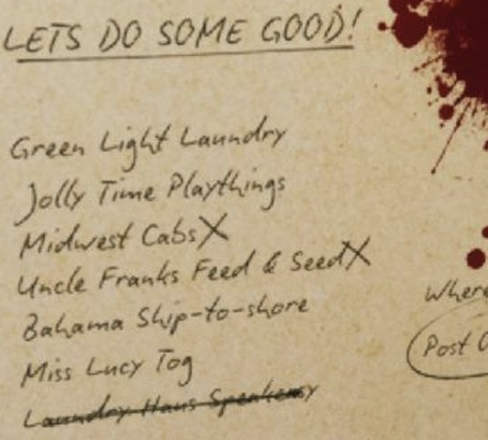 LETS DO SOME GOOD!
Green Light Laundry
Jolly Time Playthings
Midwest Cabs X
Uncle Franks Feed & Seed X
Bahama Ship-to-shore
Miss Lucy Tog
Laundry Haus Speakeasy
Where
Post O